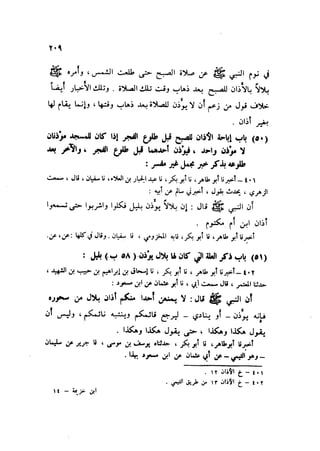 ٢٠٩
في نوم النبي ﷺ عن صلاة الصبح حتى طلعت الشمس، وأمره ﷺ
بلالاً بالأذان للصبح بعد ذهاب وقت تلك الصلاة. وتلك الأخبار أيضاً
خلاف قول من زعم أن لا يؤذن للصلاة بعد ذهاب وقتها، وإنما يقام لها
بغير أذان.
(٥٠) باب إباحة الأذان للصبح قبل طلوع الفجر إذا كان للمسجد مؤذنان
لا مؤذن واحد، فيؤذن أحدهما قبل طلوع الفجر، والآخر بعد
طلوعه بذكر خبر مجمل غير مفسر:
٤٠١ – أخبرنا أبو طاهر، نا أبو بكر، نا عبد الجبار بن العلاء، نا سفيان، قال، سمعت
الزهري، يحدث يقول، أخبرني سالم عن أبيه:
أن النبي ﷺ قال: إن بلالاً يؤذن بليل فكلوا واشربوا حتى تسمعوا
أذان ابن أم مكتوم.
أخبرنا أبو طاهر، نا أبو بكر، ثناه المخزومي، نا سفيان. وقال في كلها: عن، عن.
(٥١) باب ذكر العلة التي كان لها بلال يؤذن (٥٨ ب) بليل:
٤٠٢ – أخبرنا أبو طاهر، نا أبو بكر، نا إسحاق بن إبراهيم بن حبيب بن الشهيد،
حدثنا المعتمر، قال سمعت أبي، نا أبو عثمان عن ابن مسعود:
أن النبي ﷺ قال: لا يمنعن أحداً منكم أذان بلال من سحوره
فإنه يؤذن – أو ينادي – ليرجع قائمكم وينتبه نائمكم، وليس أن
يقول هكذا وهكذا، حتى يقول هكذا وهكذا.
أخبرنا أبوطاهر، نا أبو بكر، حدثناه يوسف بن موسى، نا جرير عن سليمان
– وهو التيمي – عن أبي عثمان عن ابن مسعود بهذا.
٤٠١ – خ الأذان ١٢.
٤٠٢ – خ الأذان ١٣ من طريق التيمي.
ابن خزيمة – ١٤